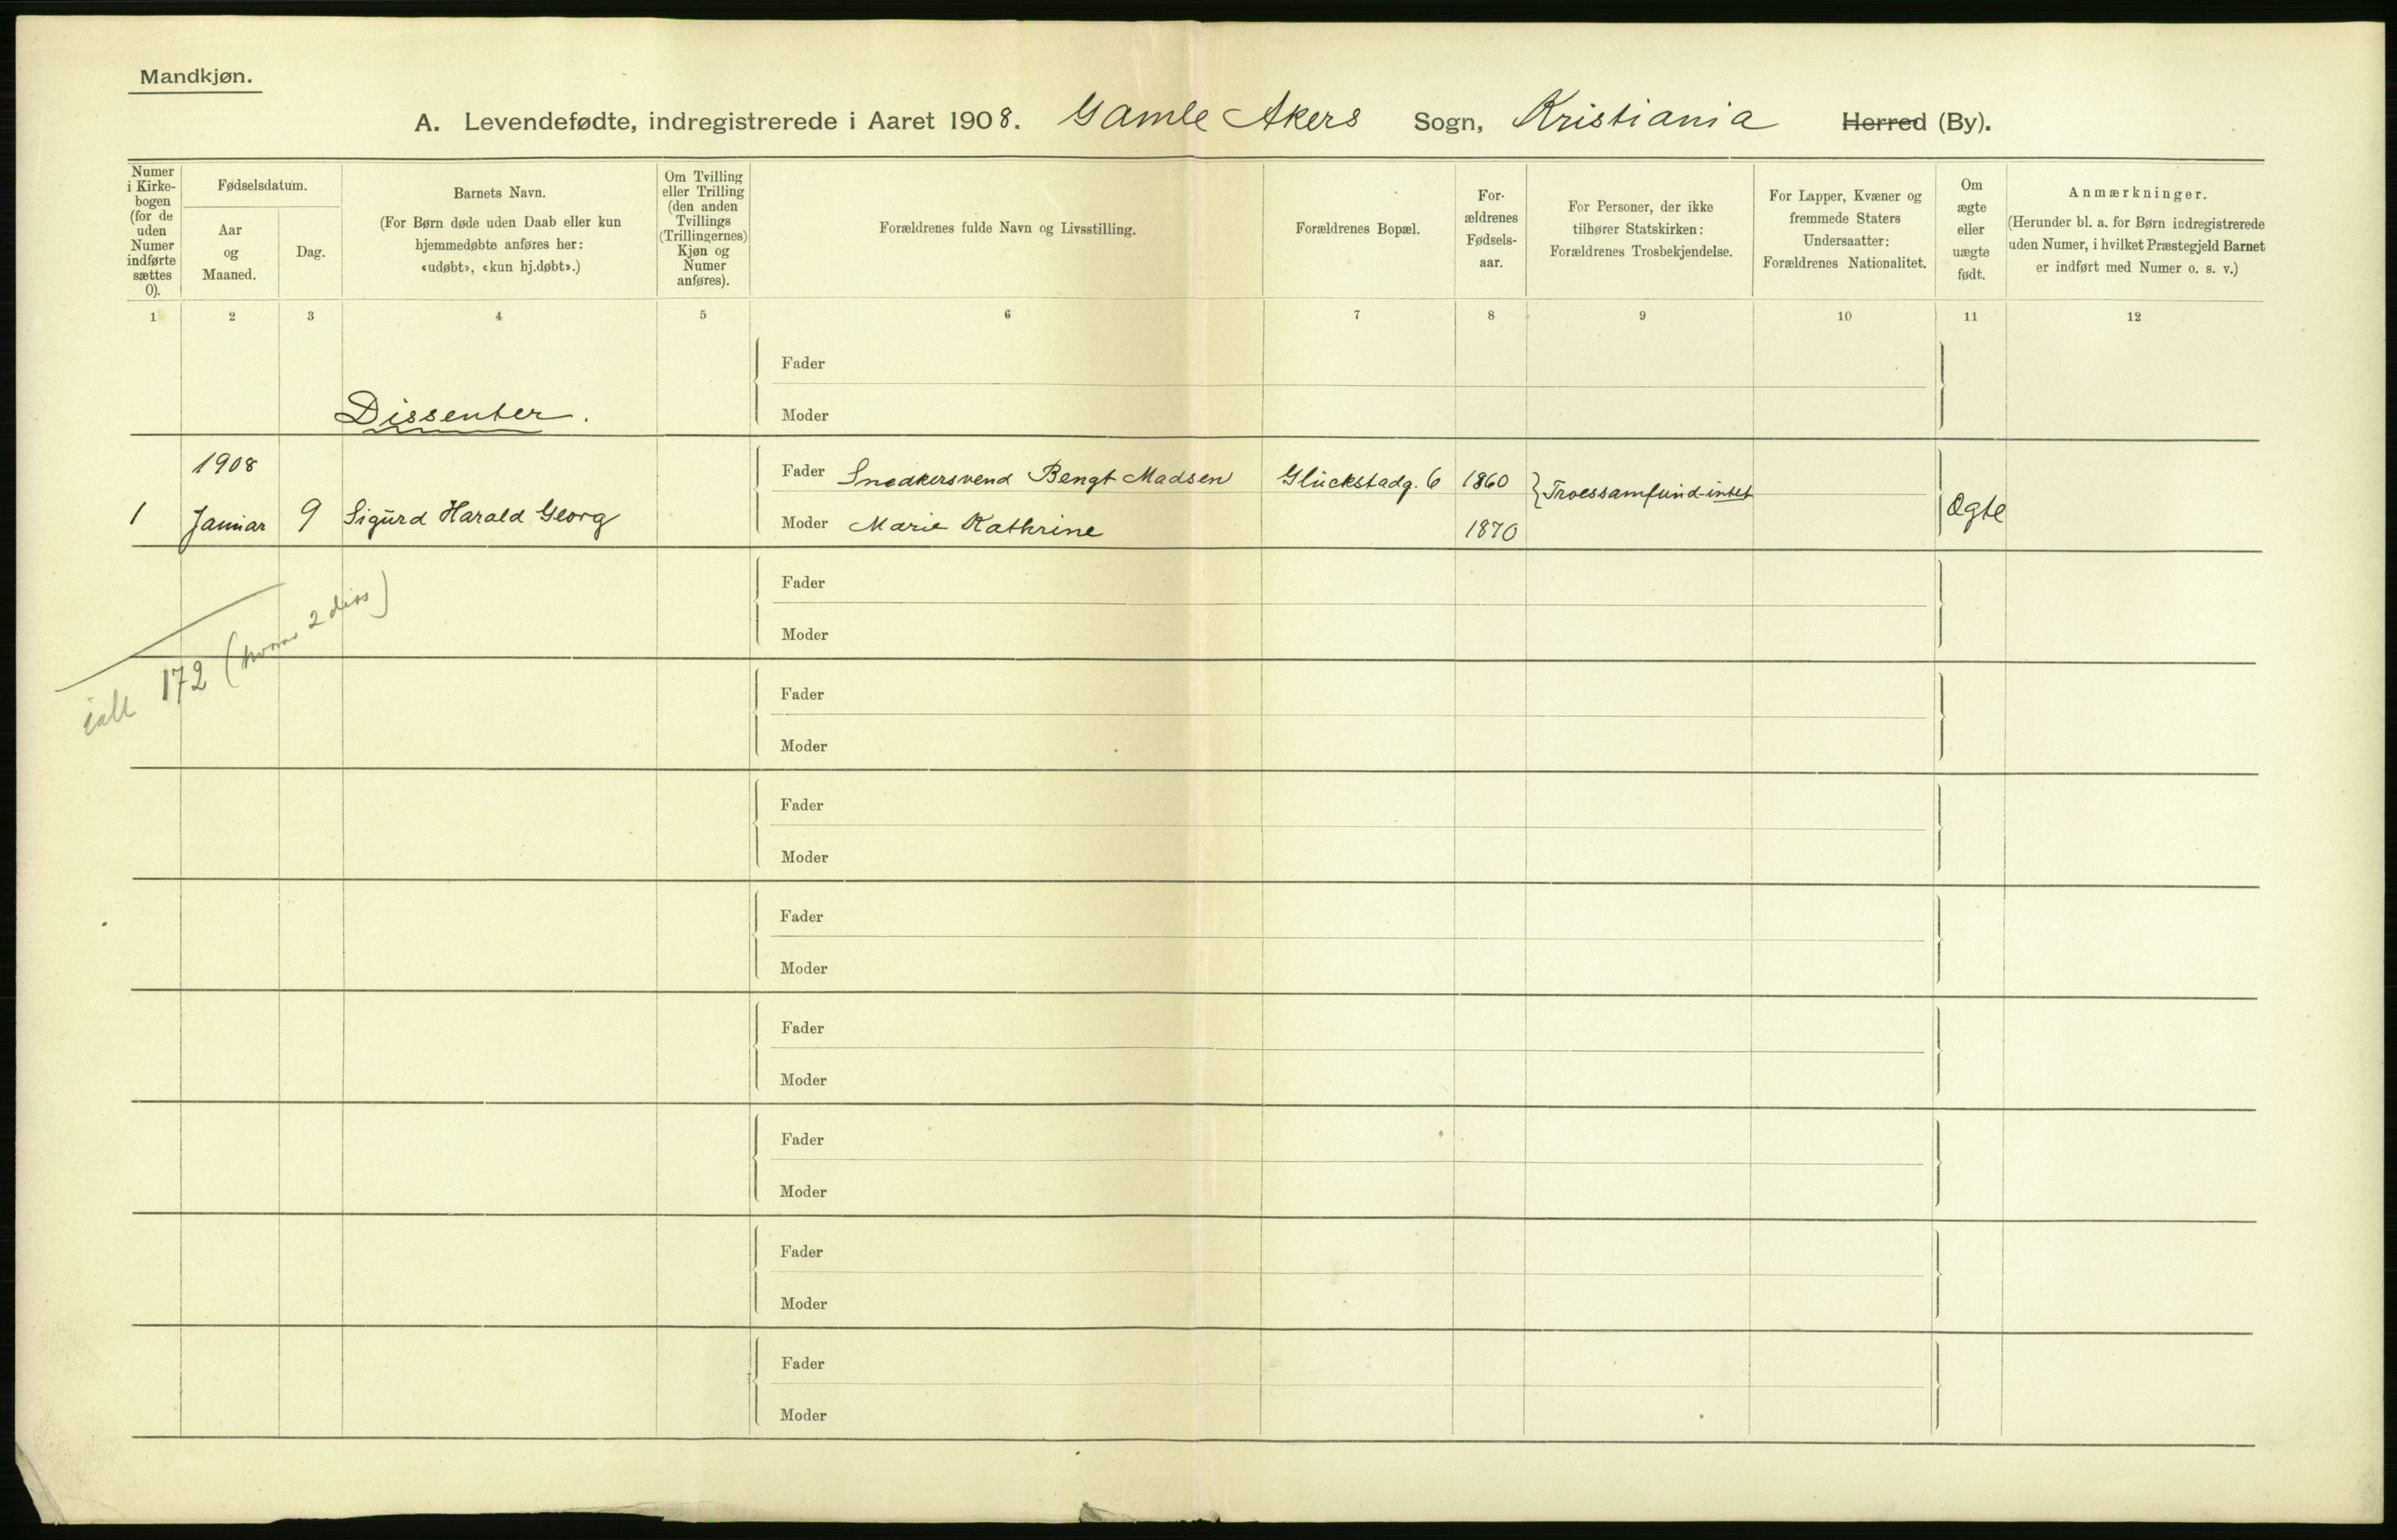 Mandkjøn.
A. Levendefødte, indregistrerede i Aaret 1908. Gamle Akers Sogn, Kristiania Herred (By).
Numer
i Kirke-
bogen
(for de
uden
Numer
indførte
sættes
0).
Fødselsdatum.
Aar
og
Maaned.
Dag.
Barnets Navn.
(For Børn døde uden Daab eller kun
hjemmedøbte anføres her:
«udøbt», «kun hj.døbt».)
Om Tvilling
eller Trilling
(den anden
Tvillings
(Trillingernes)
Kjøn og
Numer
anføres).
Forældrenes fulde Navn og Livsstilling.
Forældrenes Bopæl.
For-
ældrenes
Fødsels-
aar.
For Personer, der ikke
tilhører Statskirken:
Forældrenes Trosbekjendelse.
For Lapper, Kvæner og
fremmede Staters
Undersaatter:
Forældrenes Nationalitet.
Om
ægte
eller
uægte
født.
Anmærkninger.
(Herunder bl. a. for Børn indregistrerede
uden Numer, i hvilket Præstegjeld Barnet
er indført med Numer o. s. v.)
1 2 3 4 5 6 7 8 9 10 11 12
Fader
Dissenter.
Moder
1908
Fader Snedkersvend Bengt Madsen Glückstadg. 6 1860 Troessamfund-intet
1 Januar 9 Sigurd Harald Georg Moder Marie Kathrine 1870 Ægte
Fader
Moder
ialt 172 (hvoraf 2 diss)
Fader
Moder
Fader
Moder
Fader
Moder
Fader
Moder
Fader
Moder
Fader
Moder
Fader
Moder